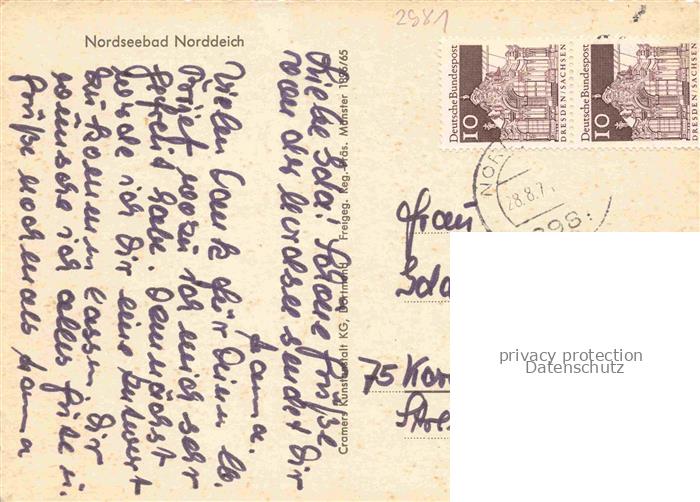 2981
Nordseebad Norddeich
Deutsche Bundespost
10
DRESDEN/SACHSEN
Deutsche Bundespost
10
DRESDEN/SACHSEN
NOR
28.8.7
Liebe Ida! Schöne Grüße
von der Nordsee sendet Dir
Hanna.
Vielen Dank für Deinen lb.
Brief worin ich mich sehr
gefreut habe. Demnächst
werde ich Dir eine Antwort
zukommen lassen. Dir
wünsche ich alles Gute u.
Grüße nochmals Hanna
Cramers Kunstanstalt KG, Dortmund Freigeg. Reg. Präs. Münster 1866/65
Frau
Ida
75 Kar
Stre
privacy protection
Datenschutz